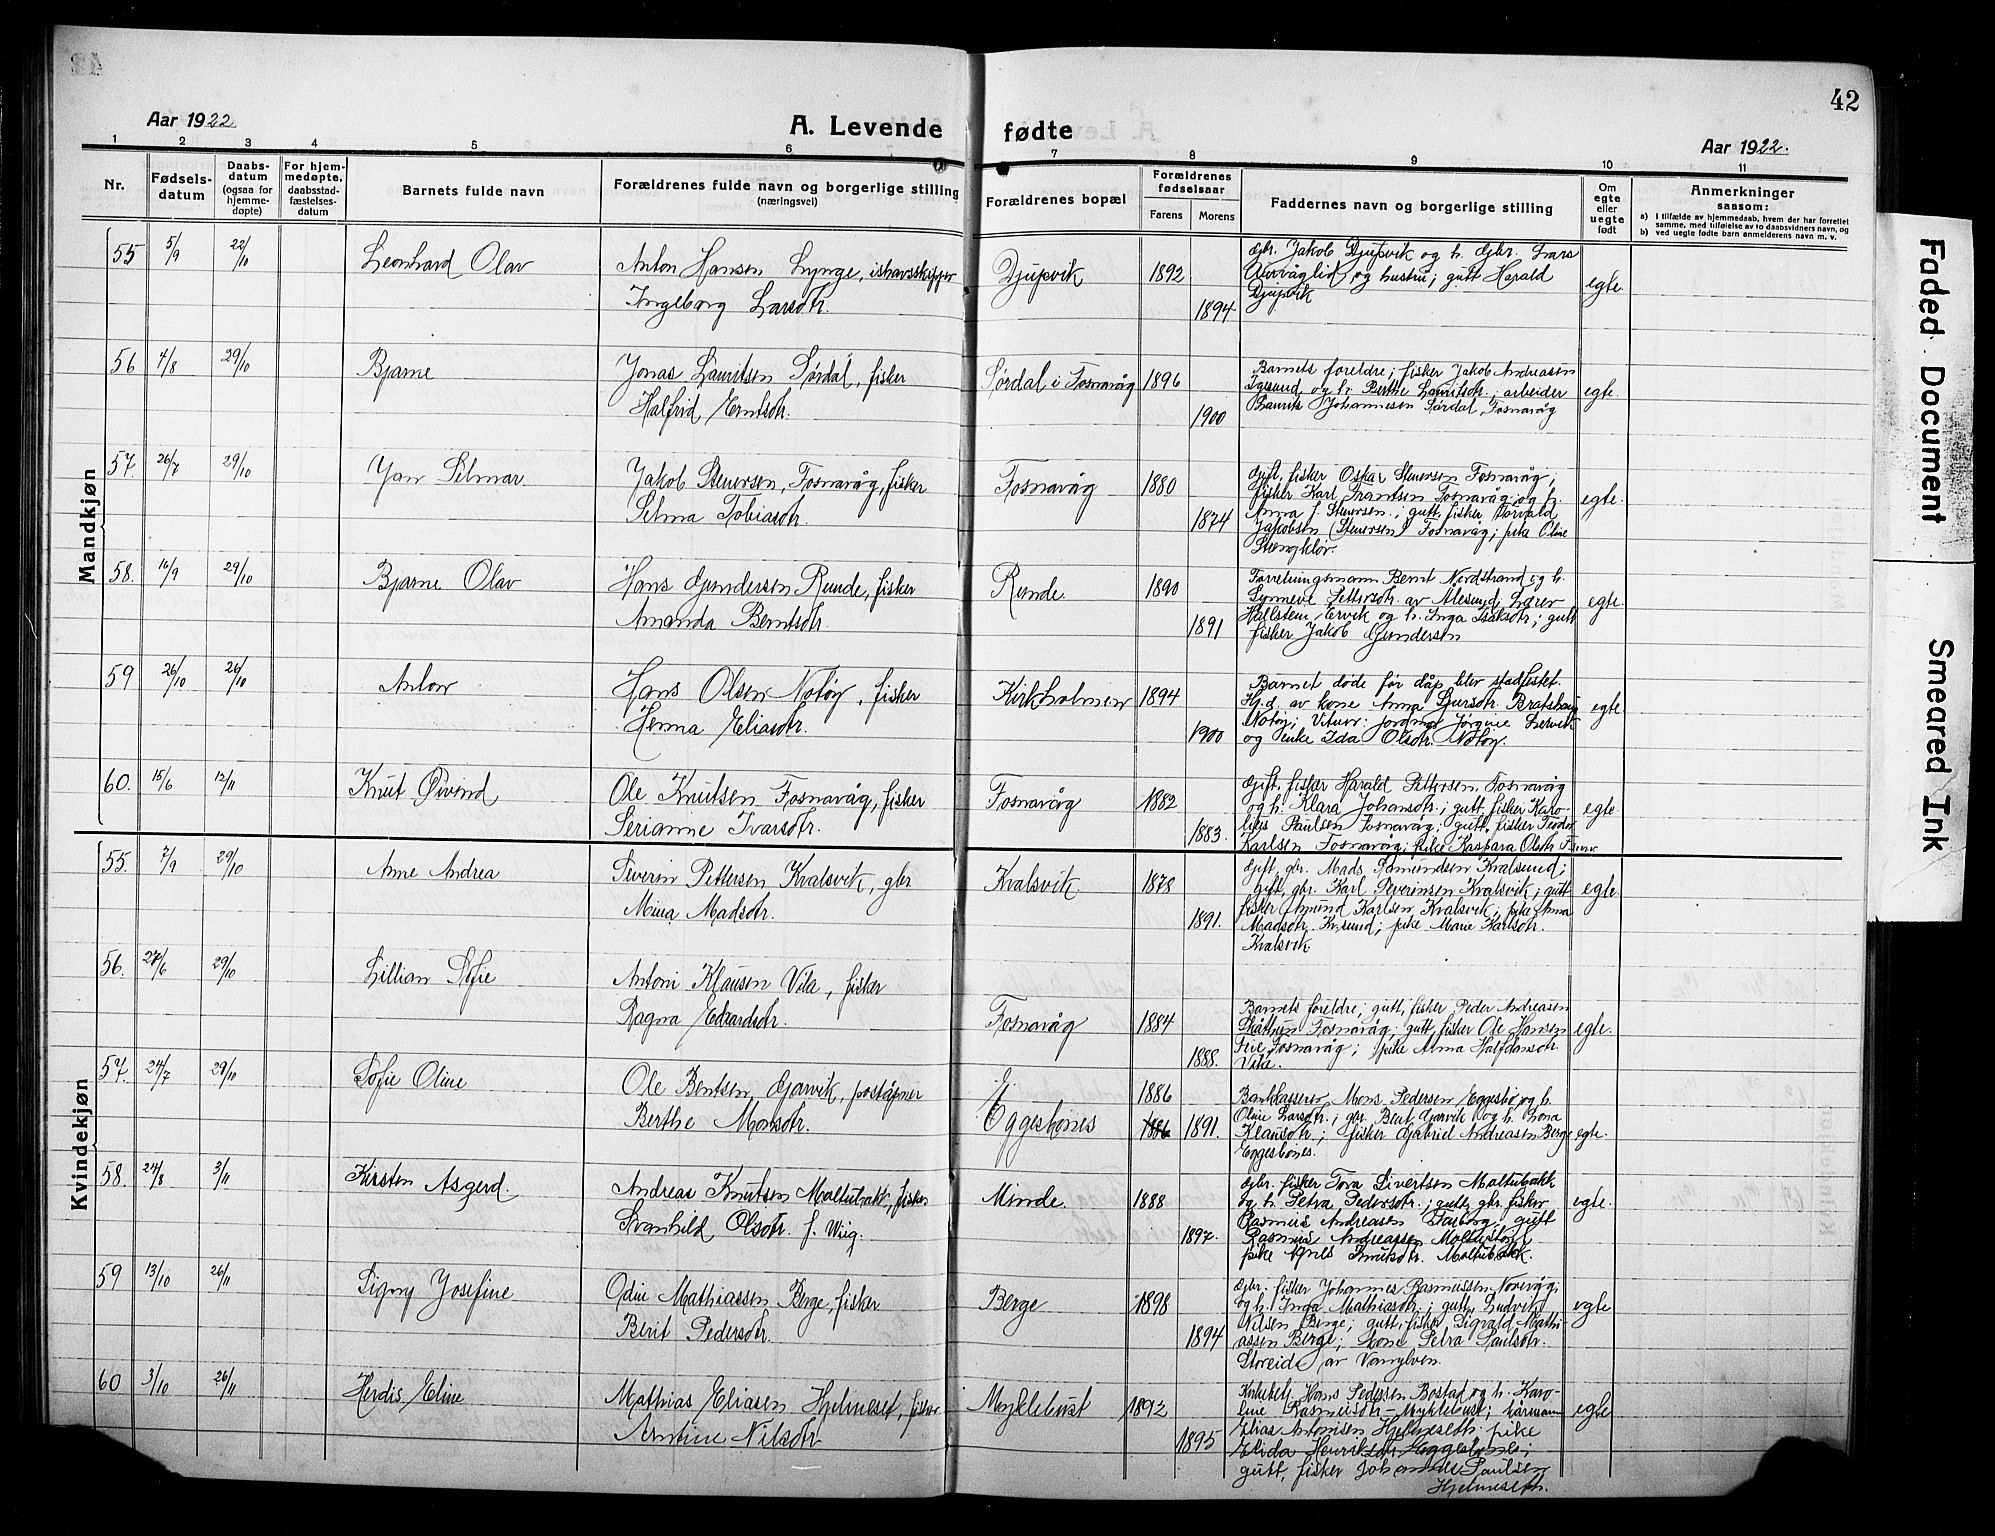 42
Aar 1922. A. Levende fødte Aar 1922.
1 2 3 4 5 6 7 8 9 10 11
Nr. Fødselsdatum Daabsdatum (ogsaa for hjemmedøpte) For hjemmedøpte, daabsstadfæstelsesdatum Barnets fulde navn Forældrenes fulde navn og borgerlige stilling (næringsvei) Forældrenes bopæl Forældrenes fødselsaar Farens Morens Faddernes navn og borgerlige stilling Om egte eller uegte født Anmerkninger saasom:
a) i tilfælde av hjemmedaab, hvem der har forrettet samme, med tilføielse av to daabsvidners navn, og
b) ved uegte fødte barn anmelderens navn m. v.
Mandkjøn
55 5/9 22/10 Leonhard Olav Anton Hansen Lynge, ishavsskipper Djupvik 1892 gbr. Jakob Djupvik og h. gbr. Lars
Aurvåglid og hustru; gutt Harald egte.
Ingeborg Larsdtr. 1894 Djupvik
56 4/8 29/10 Bjarne Jonas Lauritsen Sørdal, fisker Sørdal i Fosnavåg 1896 Barnets foreldre; fisker Jakob Andreasen
Igesund og h. Berthe Lauritsdtr.; arbeider egte.
Halfrid Erntsdtr. 1900 Laurits Johannesen Sørdal, Fosnavåg
57. 26/7 29/10 Jan Selmar Jakob Steversen, Fosnavåg, fisker Fosnavåg 1880 Gift, fisker Oskar Steversen Fosnavåg;
fisker Karl Frantsen Fosnavåg og h. egte.
Selma Tobiasdtr. 1874 Anna f. Steversen; gutt, fisker Torvald
Jakobsen (Steversen) Fosnavåg; pike Oline
58. 16/9 29/10 Bjarne Olav Hans Gundersen Runde, fisker Runde. 1890 Forretningsmann Bernt Nordstrand og h.
Synneve Pettersdtr. av Ålesund; Lærer egte.
Amanda Berntsdtr. 1891 Hallstein Ervik og h. Inga Isaksdtr; gutt
fisker Jakob Gundersen
59 26/10 26/10 Anton Hans Olsen Notøy, fisker Kirkholmen 1894 Barnet døde før dåp blev stadfestet.
Hj.d. av kone Anna Sjursdtr. Bratshaug egte
Henna Eliasdtr. 1900 Notøy; Vitner: Jordmor Jørgine Leervik
og enke Ida Olsdtr. Notøy.
60. 15/6 12/11 Knut Øivind Ole Knutsen Fosnavåg, fisker Fosnavåg 1882 Gift, fisker Harald Pettersen Fosnavåg
og h. Klara Johansdtr.; gutt, fisker Karo- egte.
Serianne Ivarsdtr. 1883. lius Paulsen Fosnavåg; gutt, fisker Teodor
Karlsen Fosnavåg; pike Kaspara Olsdtr
Kvindekjøn
55. 7/9 29/10 Anne Andrea Severin Pettersen Kvalsvik, gbr Kvalsvik. 1878 Gift, gbr. Mads Amundsen Kvalsund;
gift, gbr. Karl Severinsen Kvalsvik; gutt egte
Mina Madsdtr. 1891. fisker Amund Karlsen Kvalsvik; pike Anna
Madsdtr. Kv.sund; pike Marie Karlsdtr.
Kvalsvik
56. 24/6 29/10 Lillian Sofie Antoni Klausen Vike, fisker Fosnavåg 1884 Barnets foreldre; gutt, fisker Peder Andreasen
Fosnavåg; gutt, fisker Ole Hansen egte.
Ragna Edvardsdtr. 1888. Fosnavåg; pike Anna Halfdansdtr.
Vike.
57. 24/7 29/10 Sofie Oline Ole Bentsen Gjærvik, poståpner Eggesbønes 1886 Bankkasserer Mons Pedersen Eggesbø og h.
Oline Larsdtr.; gbr. Bent Gjærvik og h. Lona
Berthe Monsdtr. 1886 1891. Klausdtr.; fisker Gabriel Andreasen Berge egte.
Eggesbønes.
58. 24/8 3/11 Kirsten Asgerd. Andreas Knutsen Moltubakk, fisker Minde. 1888 Gbr. fisker Tora Sivertsen Moltubakk
og h. Petra Pedersdtr.; gutt, gbr. fisker egte.
Svanhild Olsdtr. f. Wiig. 1897. Rasmus Andreasen Farborg; gutt
Rasmus Andreassen
pike Agnes Knutsdtr. Moltubakk.
59 13/10 26/11 Signy Josefine Odin Mathiassen Berge, fisker Berge 1898 Gbr. fisker Johannes Rasmussen Norevåg;
og h. Inga Mathiasdtr.; gutt, Ludvik egte
Berit Pedersdtr. 1894 Nilsen Berge; gutt, fisker Sigvald Mathi-
assen Berge; kone Petra Paulsdtr.
Storeide av Vanylven.
60 3/10 26/11 Herdis Eline Mathias Eliasen Hjelmeset, fisker Myklebust 1892 Kirkebetj. Hans Pedersen Bostad og h. Karo-
line Rasmusdtr - Myklebust; egte
Armine Nilsdtr 1895 Elias Antonisen Hjelmeseth; pike
Elida Henriksdtr. Eggesbønes;
gutt, fisker Johannes Paulsen
Hjelmeseth.
Faded Document
Smeared Ink